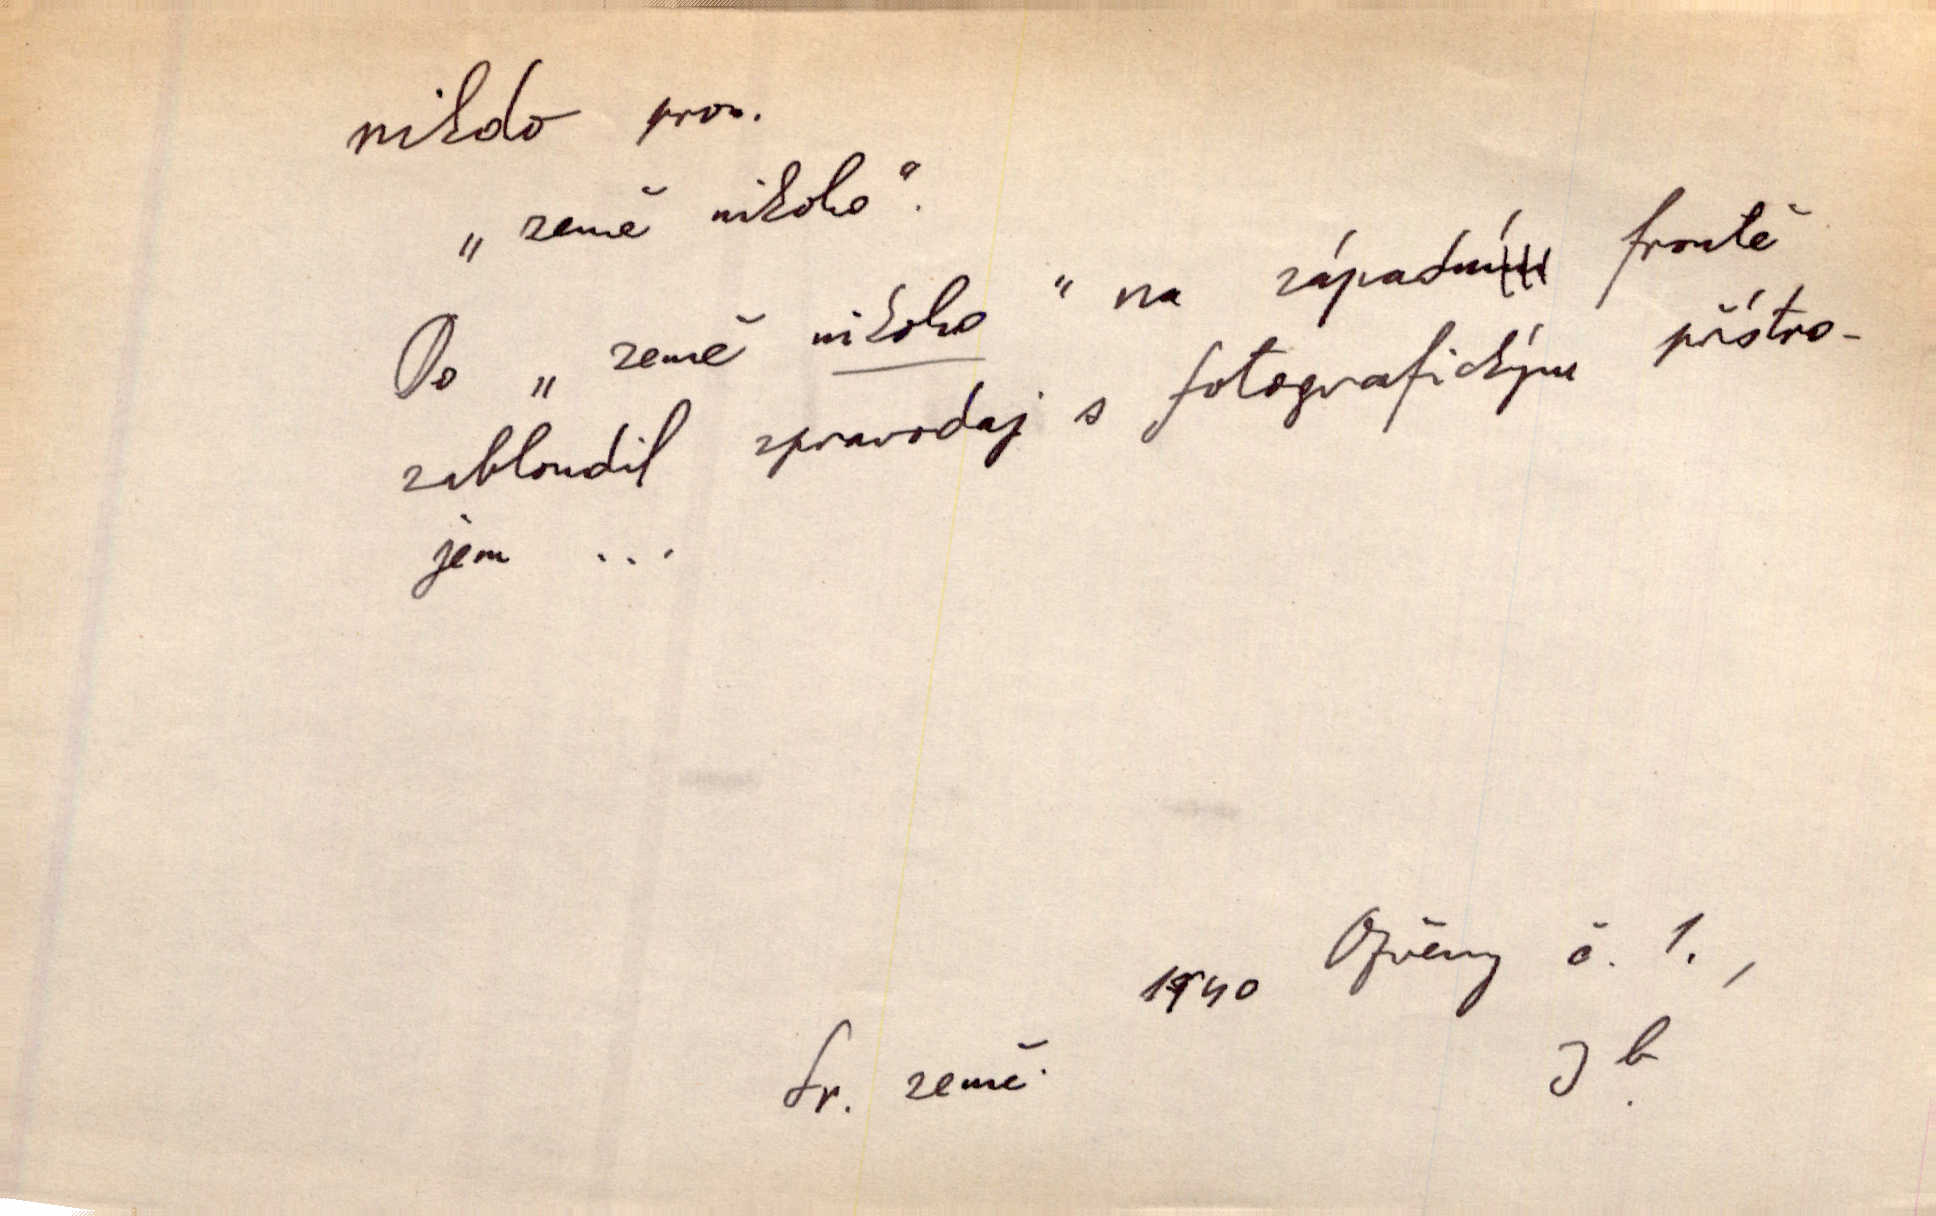 nikdo pron.
„země nikoho“.
Do „země nikoho“ na západní frontě
zabloudil zpravodaj s fotografickým přístro-
jem ...
1940 Ozvěny č. 1.,
fr. země. Jb.